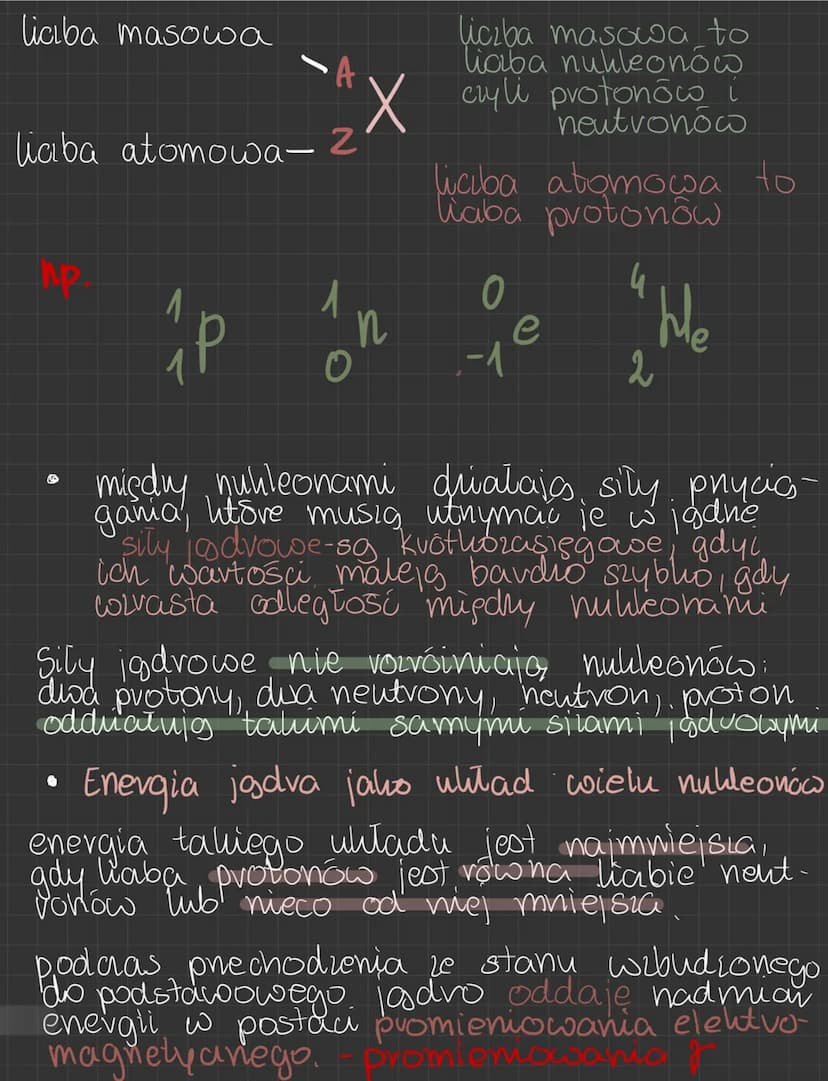 liczba masowa
A
Z
X
liczba atomowa
liczba masowa to
liczba nukleonów
czyli protonów i
neutronów
liczba atomowa to
liczba protonów
np.
1 1 p
1 0 n
0 -1 e
4 2 He
• między nukleonami działają siły przycią-
gania, które muszą utrzymać je w jądrze
siły jądrowe - są krótkozasięgowe, gdyż
ich wartości maleją bardzo szybko, gdy
wzrasta odległość między nukleonami
Siły jądrowe nie rozróżniają nukleonów:
dwa protony, dwa neutrony, neutron, proton
oddziałują takimi samymi siłami jądrowymi
• Energia jądra jako układ wielu nukleonów
energia takiego układu jest najmniejsza,
gdy liczba protonów jest równa liczbie neut-
ronów lub nieco od niej mniejsza.
podczas przechodzenia ze stanu wzbudzonego
do podstawowego jądro oddaje nadmiar
energii w postaci promieniowania elektro-
magnetycznego. - promieniowania γ